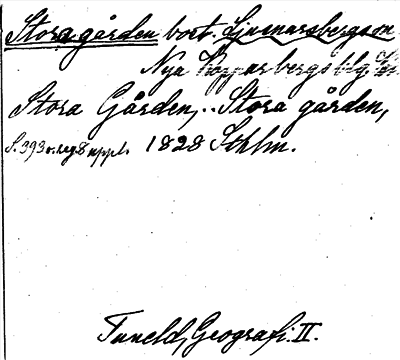 Stora gården bort. Ljusnarsbergs sn
Nya Kopparbergs blg.
Stora Gården, .. Stora gården,
S. 393 o. reg. 8 uppl. 1828 Sthlm.
Tuneld, Geografi. II.